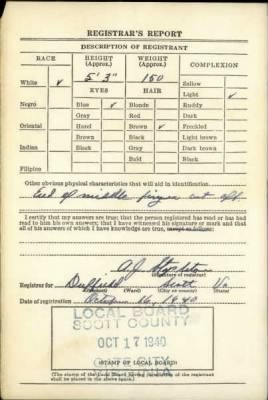 REGISTRAR'S REPORT
DESCRIPTION OF REGISTRANT
RACE
HEIGHT (Approx.)
WEIGHT (Approx.)
COMPLEXION
White ✓
5' 3"
150
Sallow
EYES
HAIR
Light ✓
Negro
Blue ✓
Blonde
Ruddy
Gray
Red
Dark
Oriental
Hazel
Brown ✓
Freckled
Brown
Black
Light brown
Indian
Black
Gray
Dark brown
Bald
Black
Filipino
Other obvious physical characteristics that will aid in identification
End of middle finger cut off.
I certify that my answers are true; that the person registered has read or has had
read to him his own answers; that I have witnessed his signature or mark and that
all of his answers of which I have knowledge are true, except as follows:
(Signature of registrar)
Registrar for Duffield Scott Va
(Precinct) (Ward) (City or county) (State)
Date of registration October 16, 1940
LOCAL BOARD
SCOTT COUNTY
OCT 17 1940
GATE CITY
(STAMP OF LOCAL BOARD)
(The stamp of the Local Board having jurisdiction of the registrant
shall be placed in the above space.)